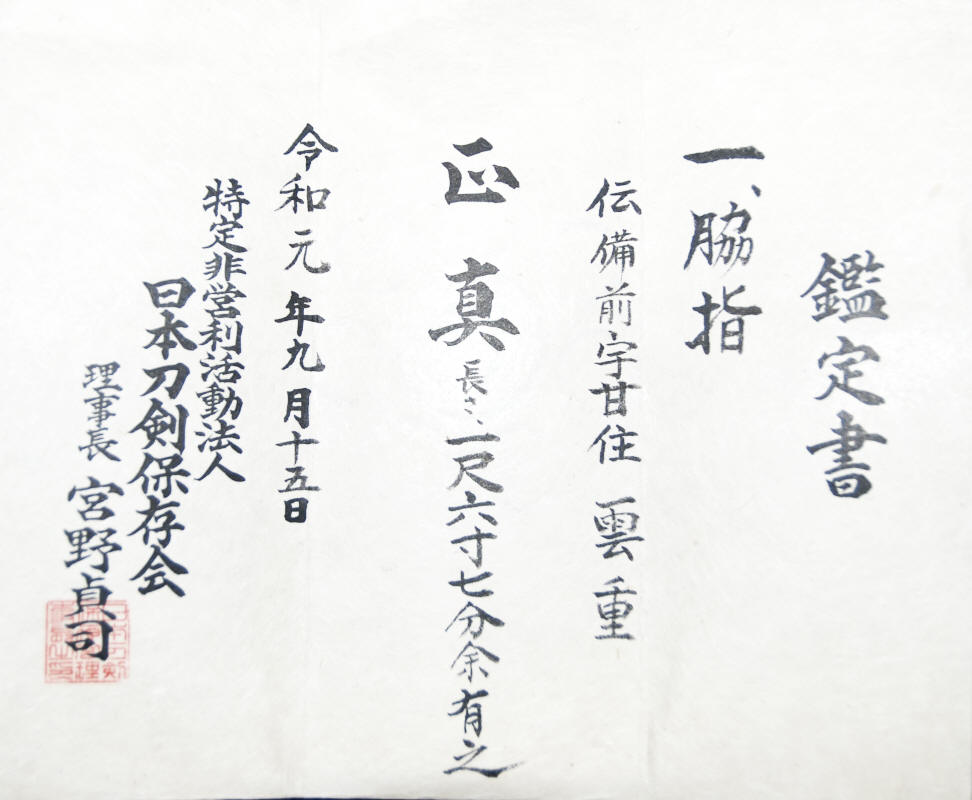 鑑定書
一、脇指
伝備前宇甘住 雲重
正真 長さ、一尺六寸七分余有之
令和元年九月十五日
特定非営利活動法人
日本刀剣保存会
理事長 宮野貞司